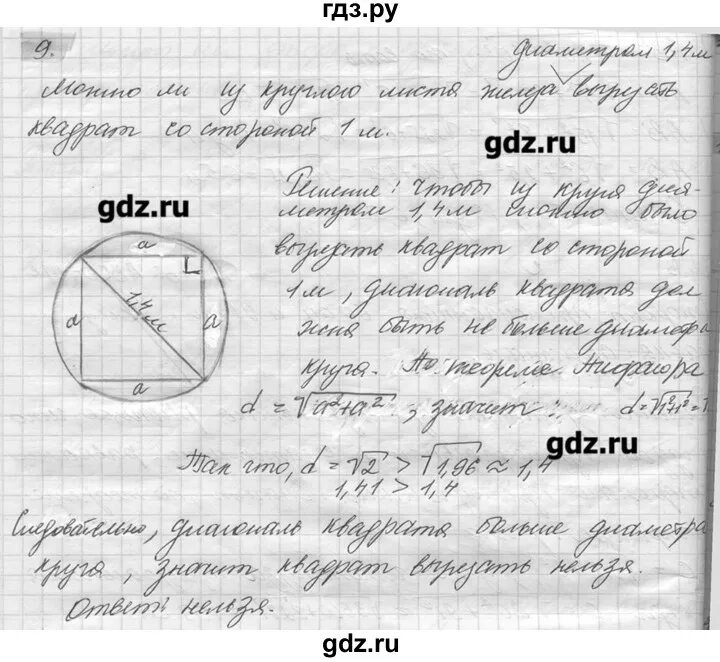 гдз.ру
9.
диаметром 1,4 м
Можно ли из круглого листа железа вырезать
квадрат со стороной 1 м.
gdz.ru
Решение: Чтобы из круга диа-
метром 1,4 м можно было
gdz.ru
вырезать квадрат со стороной
1 м, диагональ квадрата дол
жна быть не больше диаметра
круга. По теореме Пифагора
a
a
1,4 м
a
a
d = √a²+a² ; значит: d=√1²+1²=
gdz.ru
Так что, d = √2 > √1,96 ≈ 1,4
1,41 > 1,4
Следовательно, диагональ квадрата больше диаметра
круга, значит квадрат вырезать нельзя.
Ответ: нельзя.
gdz.ru